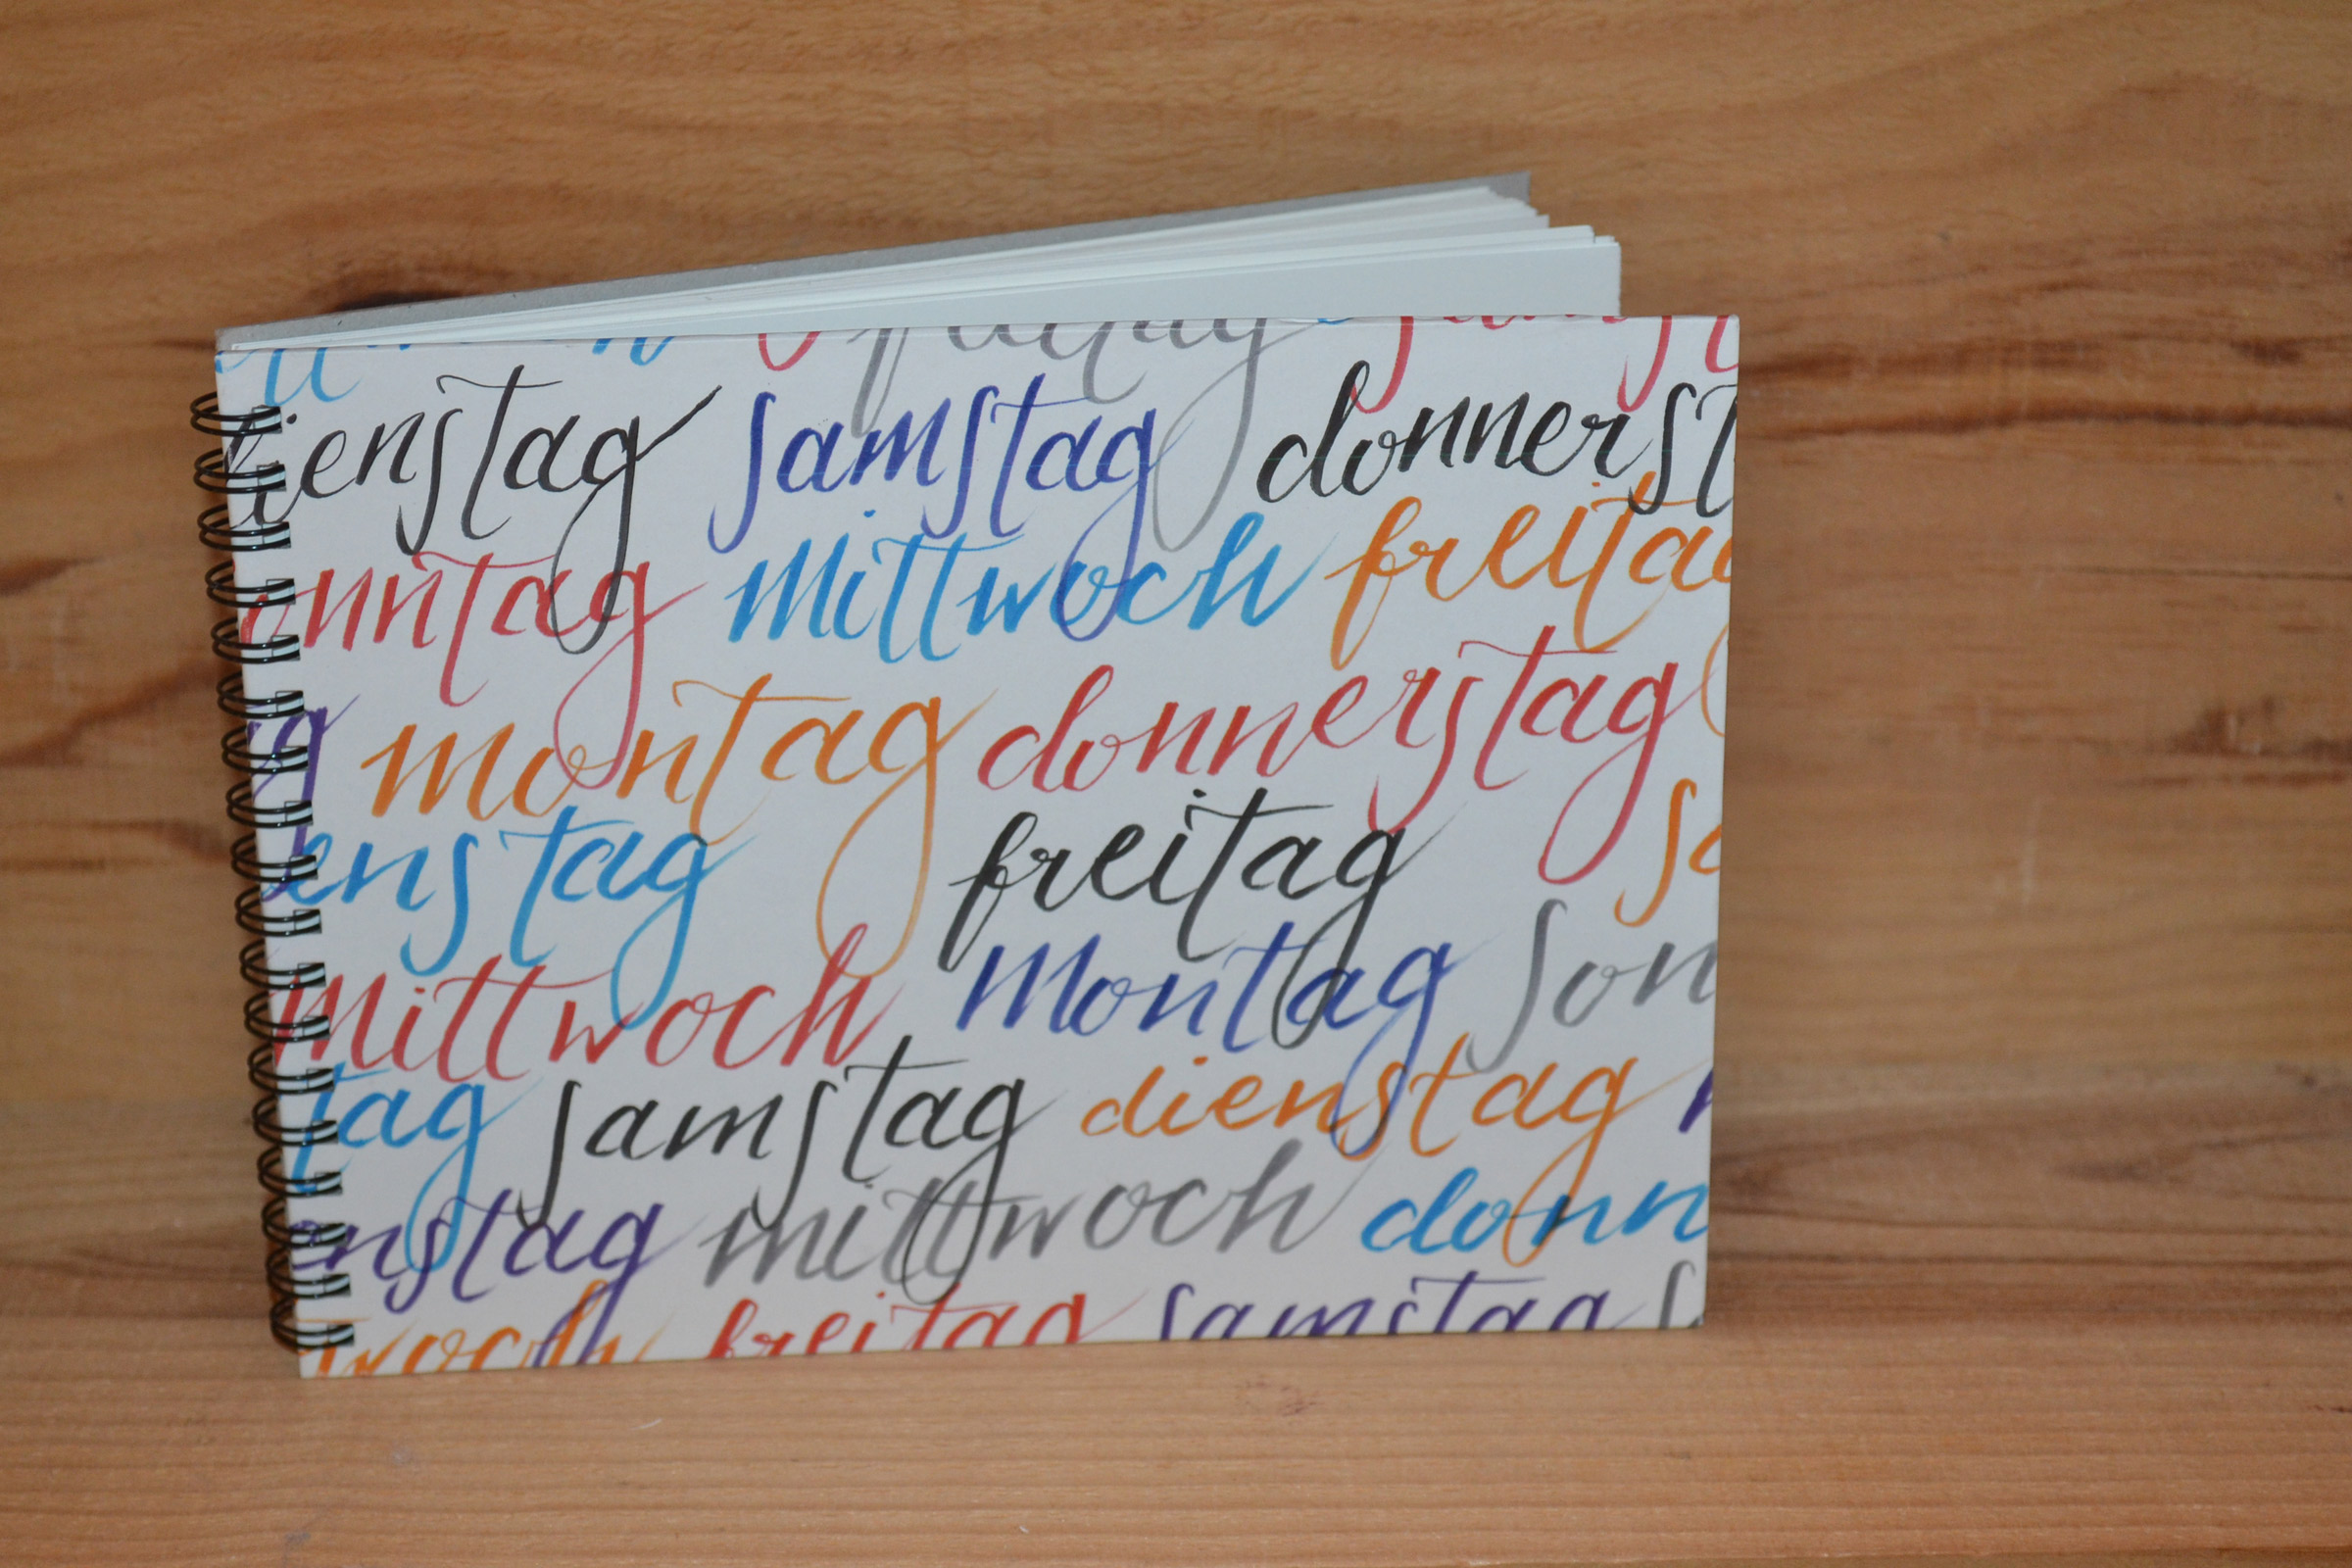 freitag
ienstag samstag donnerst
onntag mittwoch freitag
g montag donnerstag
enstag freitag sa
mittwoch montag son
tag samstag dienstag
enstag mittwoch donn
woch freitag samstag s